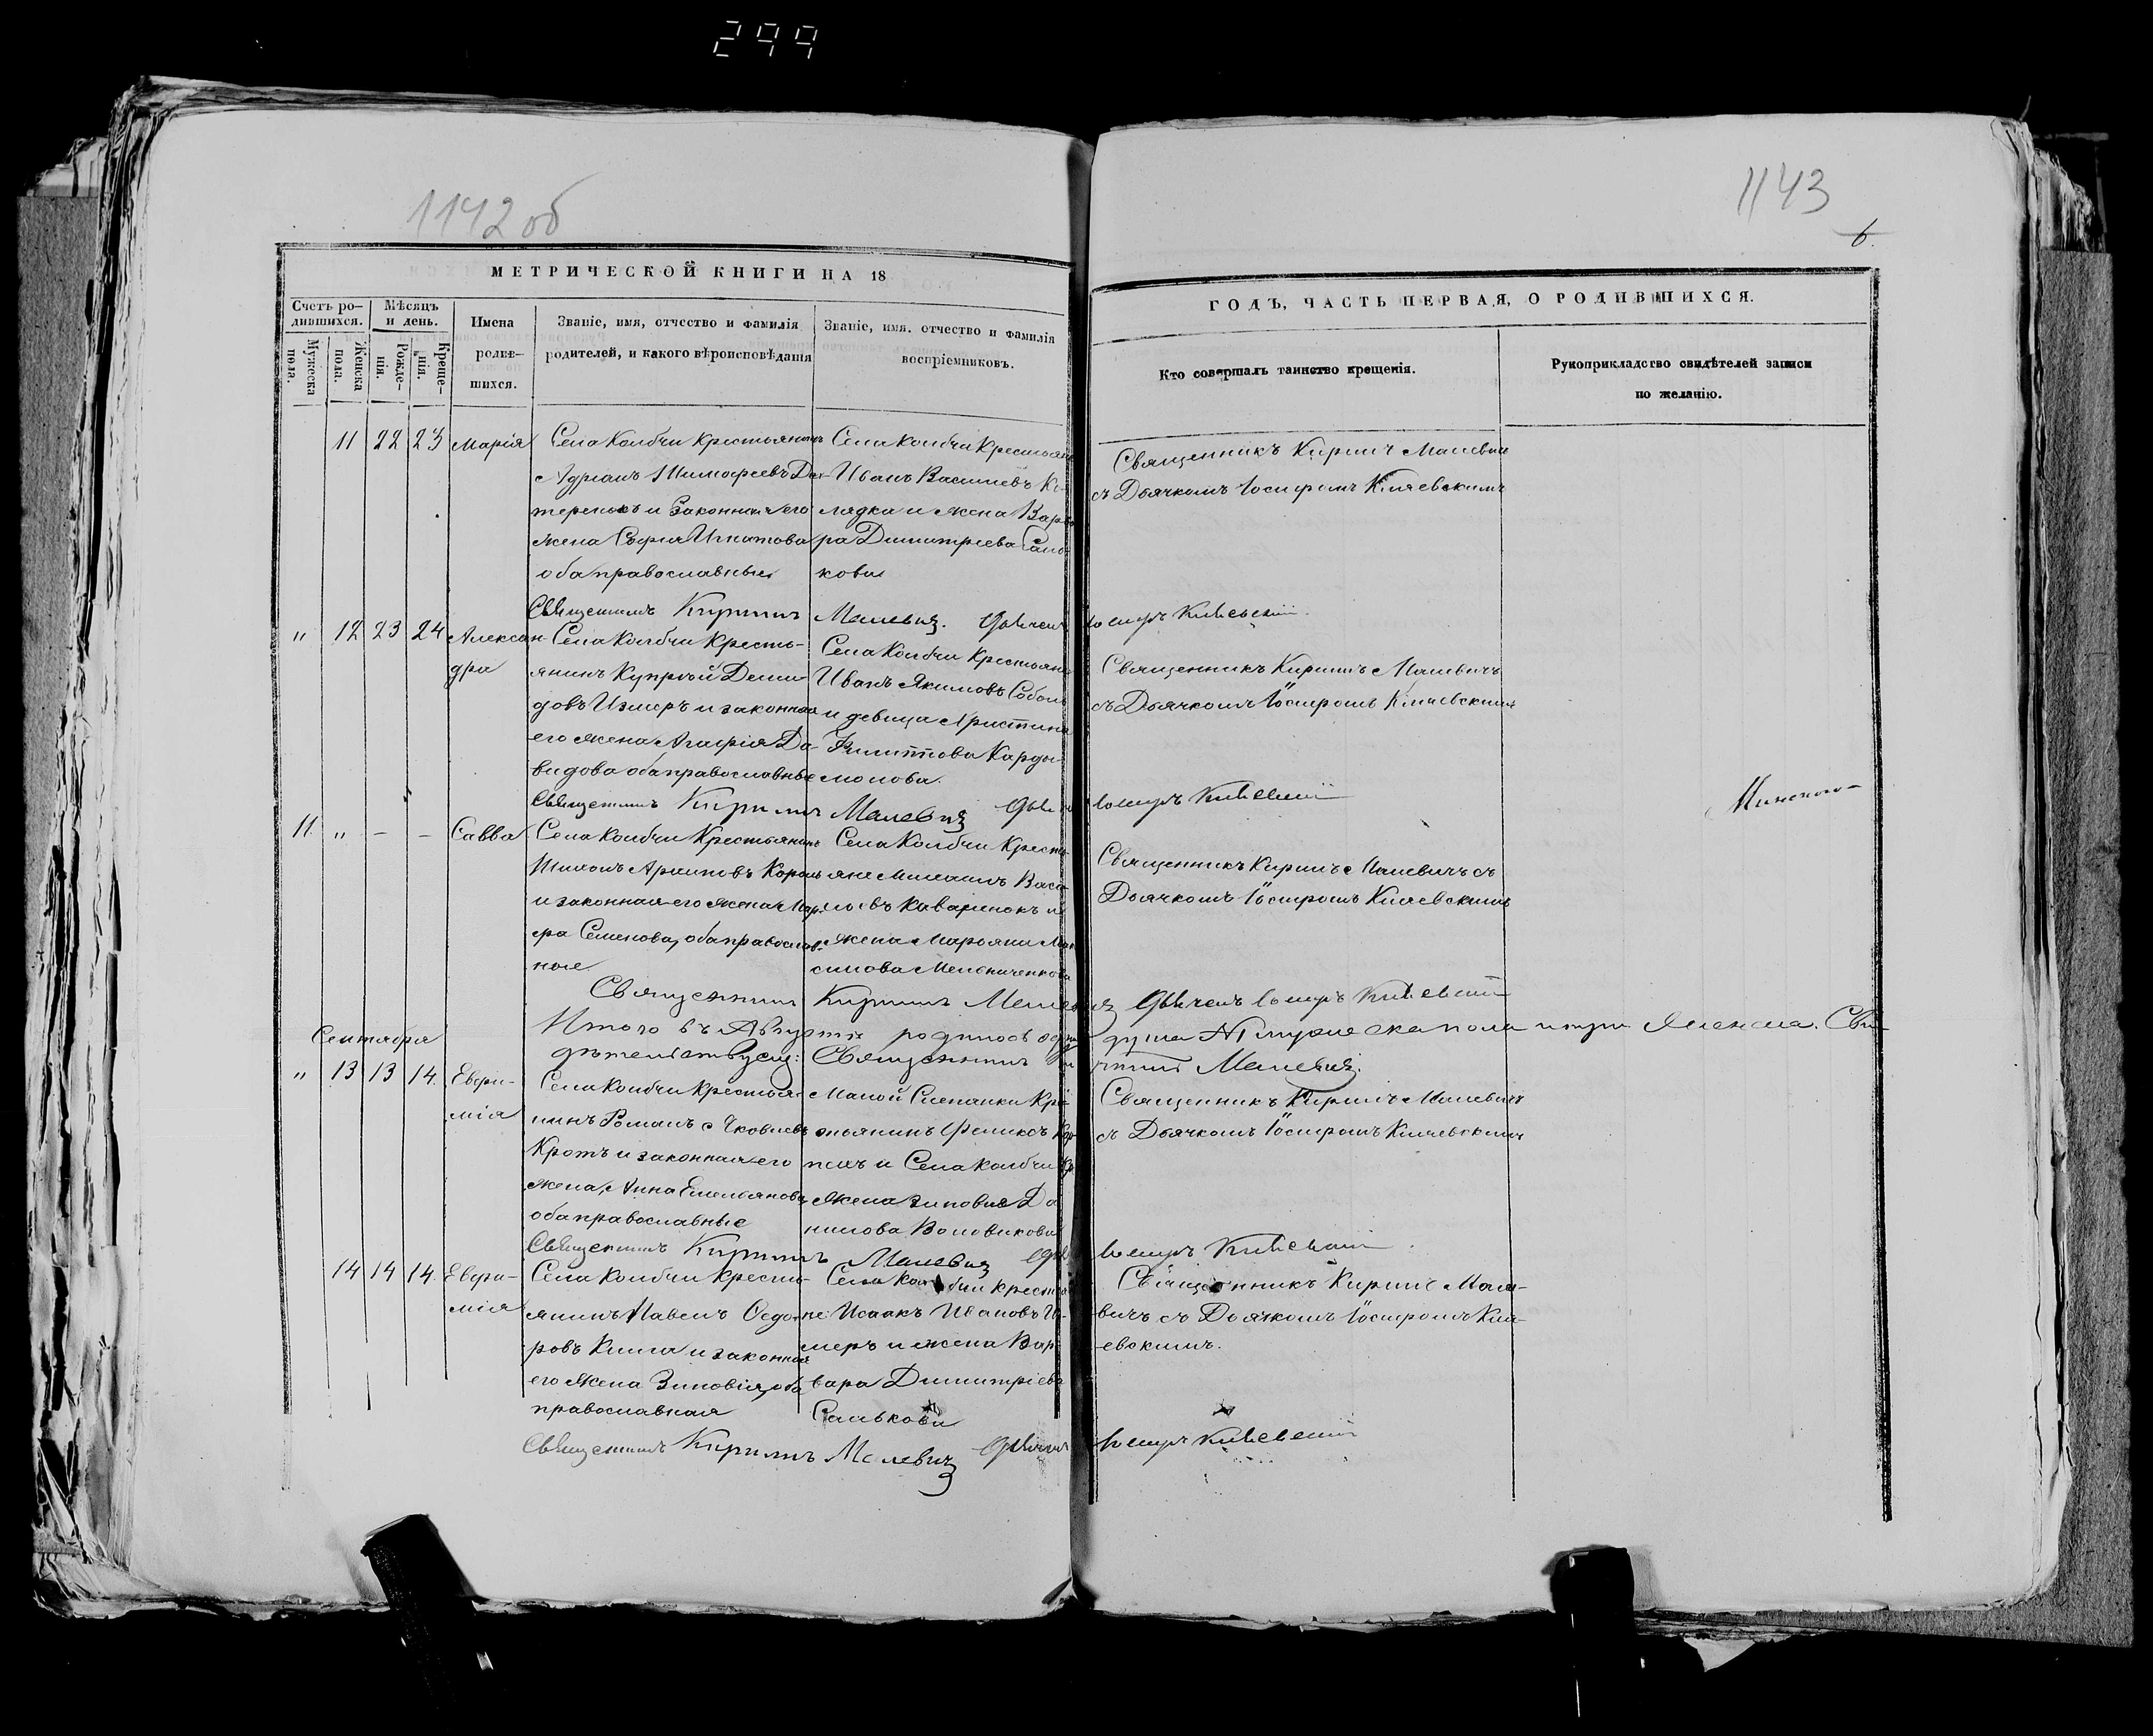 299
1142 об
1143
6.
МЕТРИЧЕСКОЙ КНИГИ НА 18
ГОДЪ, ЧАСТЬ ПЕРВАЯ, О РОДИВШИХСЯ.
Счетъ ро-
дившихся.
Мужеска
пола.
Женска
пола.
Мѣсяцъ
и день.
Рожде-
нія.
Креще-
нія.
Имена
родив-
шихся.
Званіе, имя, отчество и фамилія
родителей, и какого вѣроисповѣданія
Званіе, имя, отчество и фамилія
воспріемниковъ.
Кто совершалъ таинство крещенія.
Рукоприкладство свидѣтелей записи
по желанію.
11 22 23 Марія
Села Колбчи Крестьянинъ
Адріанъ Тимофеевъ
и законная его
жена Софія Игнатова
оба православные
Села Колбчи Крестьяне
Иванъ Василіевъ Ко-
лядка и жена Варва
ра Димитріева Сань-
кова
Священникъ Кирилъ Малевичъ
съ Дьячкомъ Іосифомъ Кияевскимъ
Священникъ Кирилъ Малевичъ. Дьячекъ Іосифъ Кияевскій.
" 12 23 24 Алексан-
дра
Села Колбчи Кресть-
янинъ Купрей Деми-
довъ Измеръ и законная
его жена Агафія Да-
видова оба православные
Села Колбчи Крестьяне
Иванъ Якимовъ Соболь
и девица Христина
Филиппова Карды-
молова.
Священникъ Кирилъ Малевичъ
съ Дьячкомъ Іосифомъ Кияевскимъ
Священникъ Кирилъ Малевичъ Дьячекъ Іосифъ Кияевскій
Минского
11. " – – Савва
Села Колбчи Крестьянинъ
Архиповъ Король
и законная его жена
Семенова, оба православ-
ные
Села Колбчи Кресть-
яне Михаилъ Васи-
лиевъ Каваленокъ и
жена Марьяна Мак
симова Мельниченкова
Священникъ Кирилъ Малевичъ съ
Дьячкомъ Іосифомъ Кияевскимъ
Священникъ Кирилъ Малевичъ Дьячекъ Іосифъ Кияевскій
Итого въ Августѣ родилось одна душа мужеска пола и три женска. Сви-
дѣтельствую: Священникъ Кирилъ Малевичъ.
Сентября
" 13 13 14. Евфи-
мія
Села Колбчи Крестья-
нинъ Романъ Яковлевъ
Кротъ и законная его
жена, Анна Емельянова
оба православные
Малой Слепанки Кре-
стьянинъ Феликсъ
и Села Колбчи
жена Зиновия Да
нилова Воловикова
Священникъ Кирилъ Малевичъ
съ Дьячкомъ Іосифомъ Кияевскимъ
Священникъ Кирилъ Малевичъ Іосифъ Кияевскій.
14 14 14. Евфи-
мія
Села Колбчи Кресть-
янинъ Павелъ Федо-
ровъ и законная
его жена Зиновія, оба
православная
Села Колбчи Крестья
не Исаакъ Ивановъ Из-
меръ и жена Вар
вара Димитріева
Санькова
Священникъ Кирилъ Мале-
вичъ съ Дьячкомъ Іосифомъ Кия-
евскимъ.
Священникъ Кирилъ Малевичъ Дьячекъ Іосифъ Кияевскій